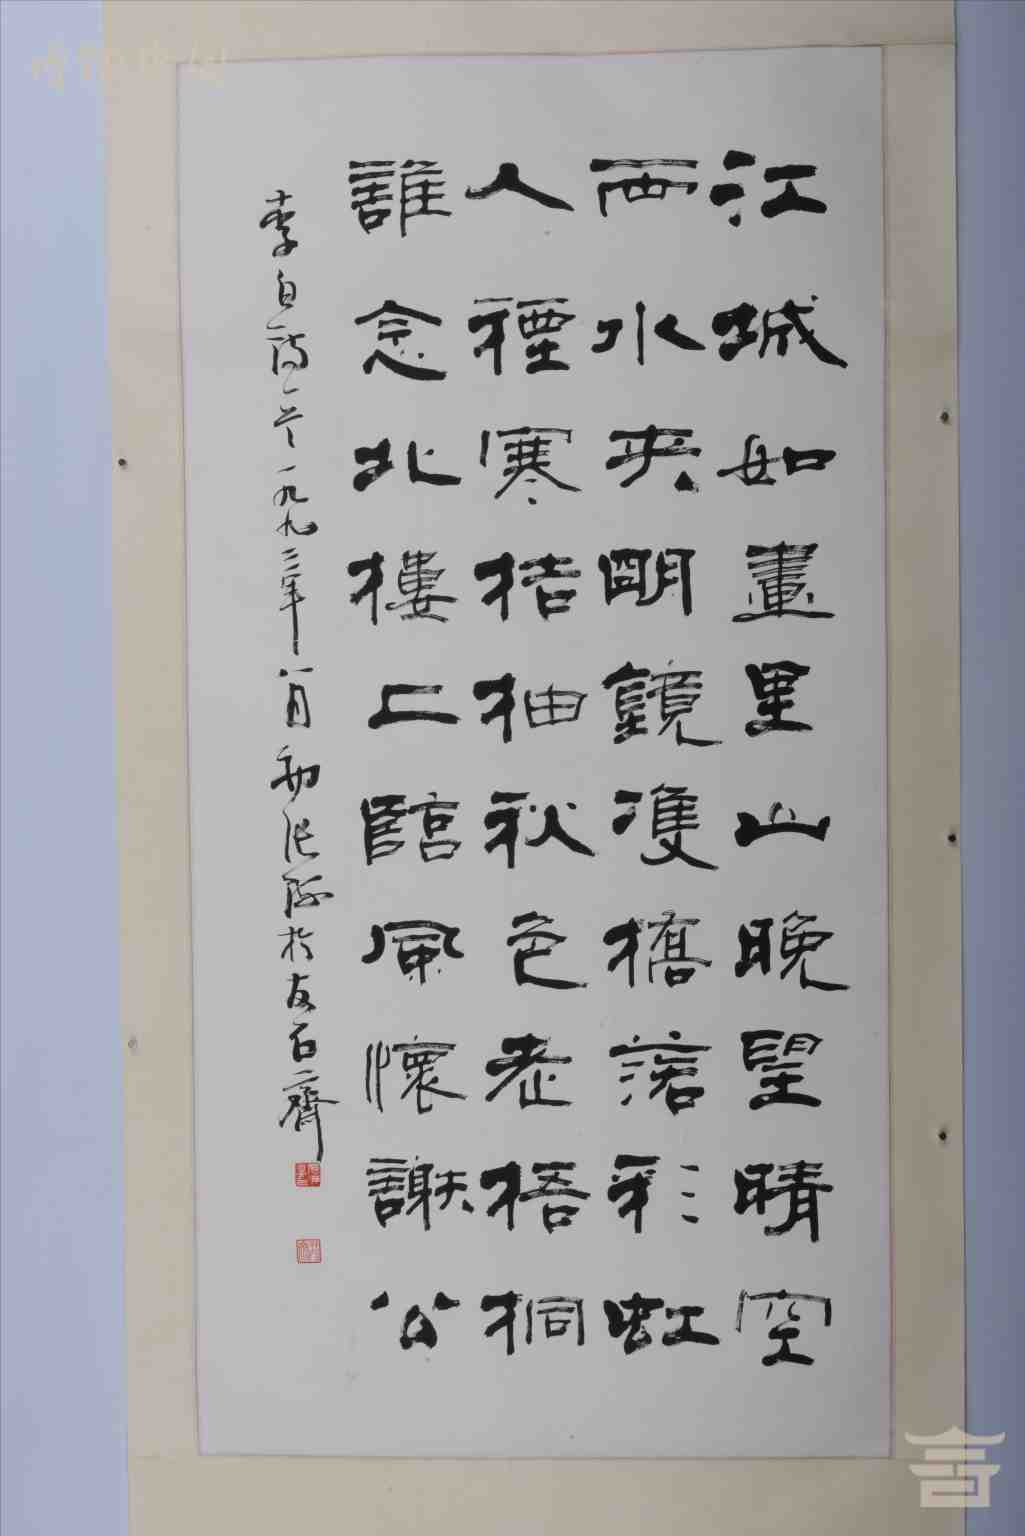 江城如畫里山晚望晴空
两水夾明鏡雙橋落彩虹
人煙寒桔柚秋色老梧桐
誰念北樓上臨風懷謝公
李白詩一首一九九二年八月初張於友石齋